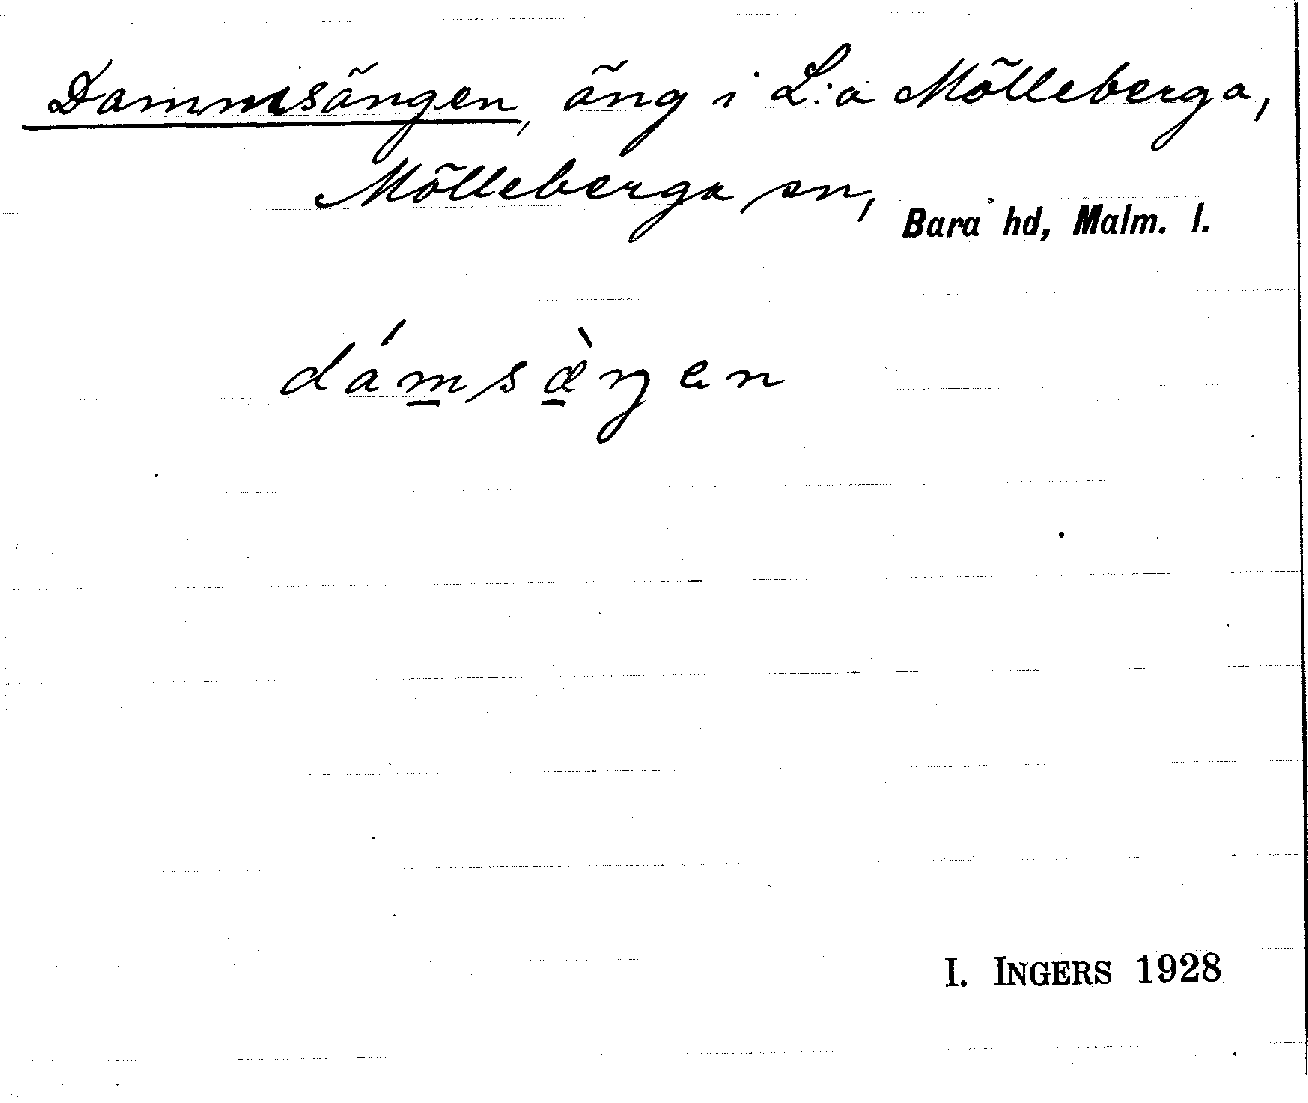 Dammsängen, äng i L:a Mölleberga,
Mölleberga sn, Bara hd, Malm. l.
dám̲sæ̠̀ŋen
I. INGERS 1928